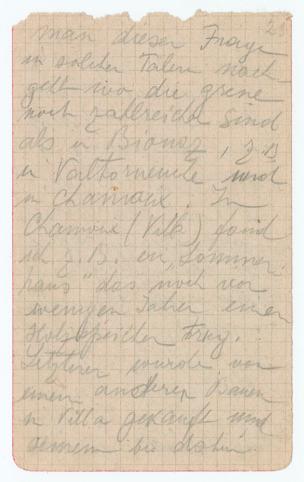 28
man dieser Frage
in solchen Talern nach
geht wo die
noch zahlreich sind
als in Bionaz, z.B.
in Valtornenche und
in Chamoix. In
Chamoix (Villa) fand
ich z.B. ein „Sommer
haus" das noch vor
wenigen Jahren einen
Holzspeicher trug.
Letzterer wurde von
einem anderen Bauern
in Villa gekauft und
seinem bis dahin